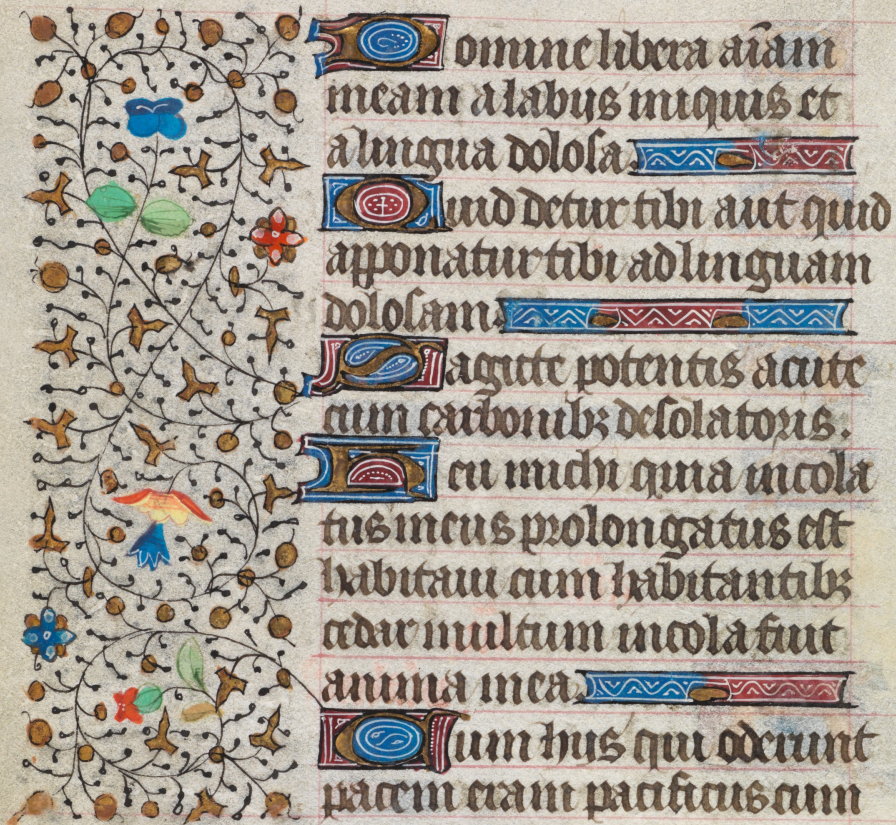 Domine libera aīam
meam a labijs iniquis et
a lingua dolosa
Quid detur tibi aut quid
apponatur tibi ad linguam
dolosam
Sagitte potentis acute
cum carbonibꝫ desolatoris.
Heu michi quia incola
tus meus prolongatus est
habitaui cum habitantibꝫ
cedar multum incola fuit
anima mea
Cum hijs qui oderunt
pacem eram pacificus cum